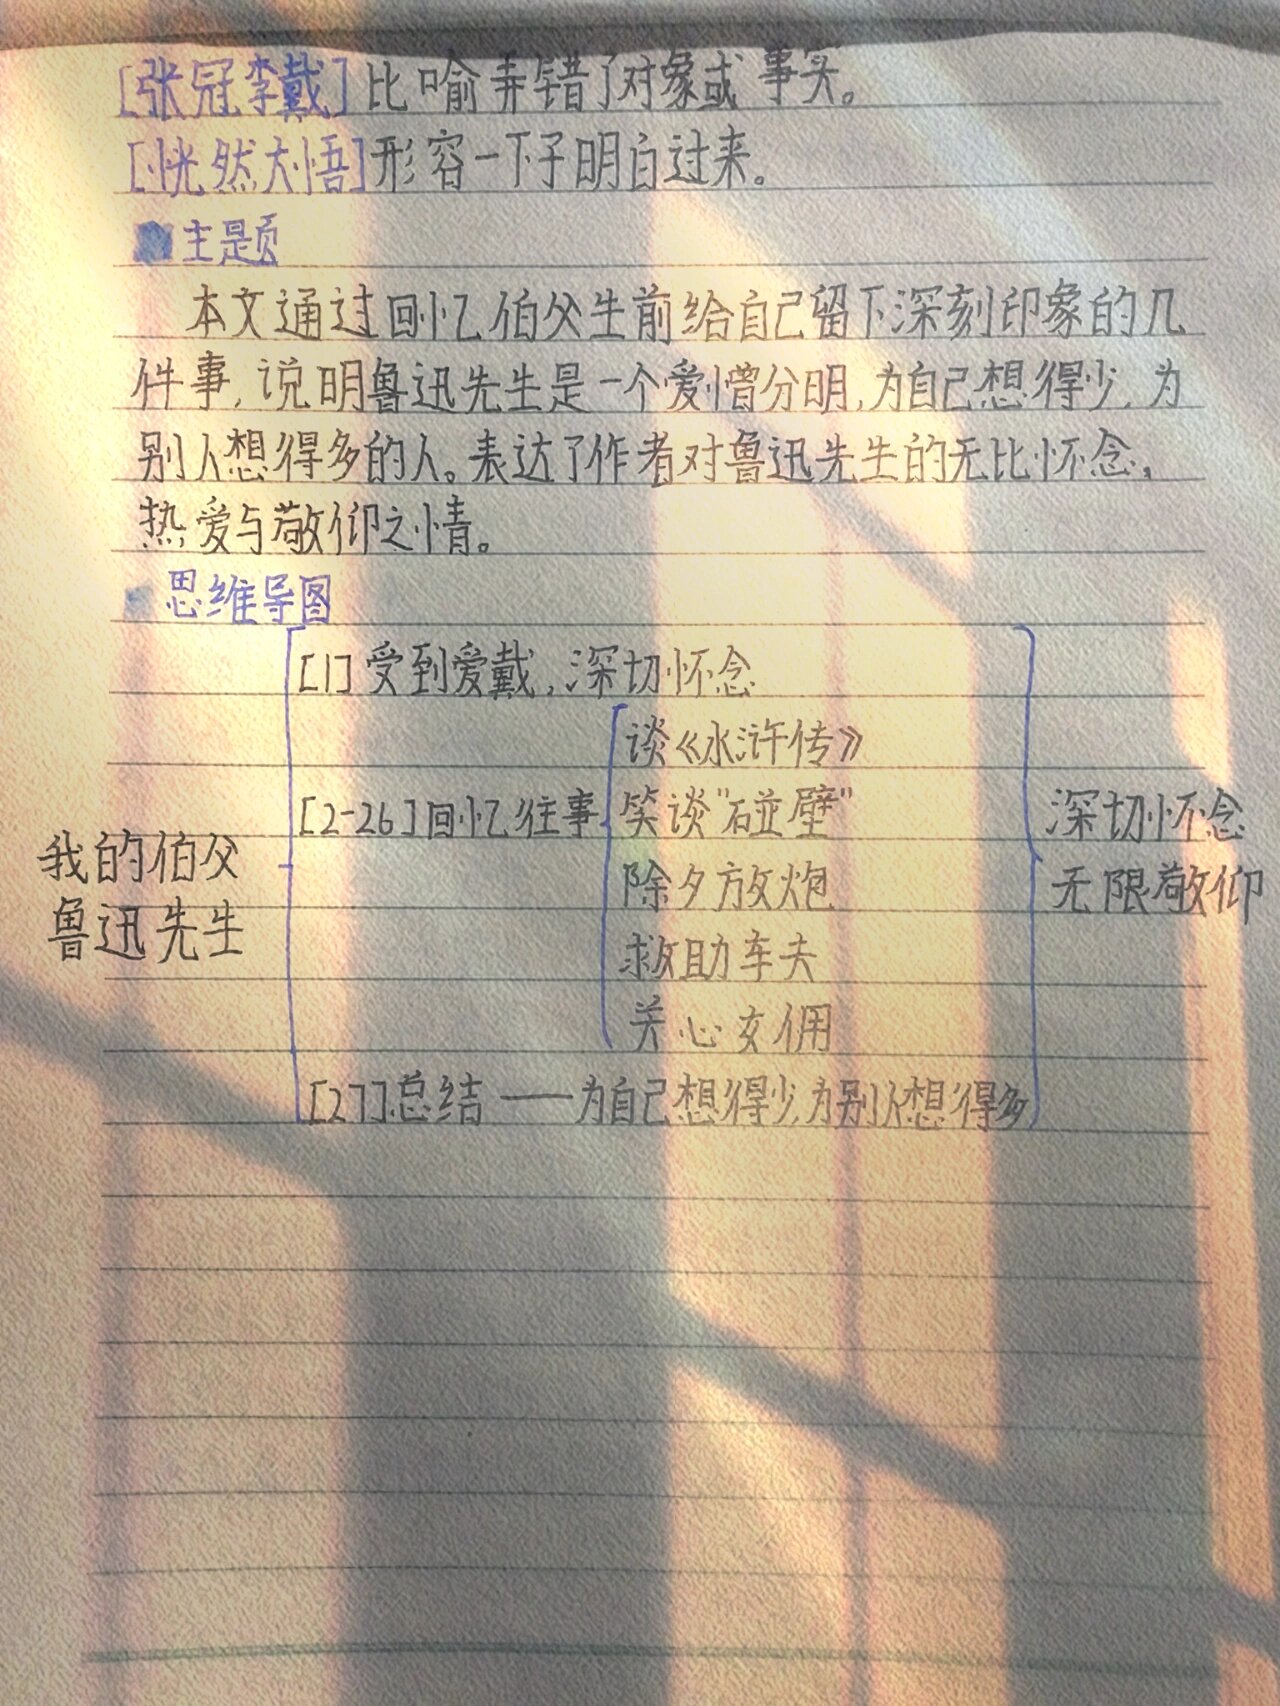 [张冠李戴]比喻弄错了对象或事实。
[恍然大悟]形容一下子明白过来。
主题
本文通过回忆伯父生前给自己留下深刻印象的几
件事,说明鲁迅先生是一个爱憎分明,为自己想得少,为
别人想得多的人。表达了作者对鲁迅先生的无比怀念,
热爱与敬仰之情。
思维导图
我的伯父
鲁迅先生
[1]受到爱戴,深切怀念
[2-26]回忆往事
谈《水浒传》
笑谈"碰壁"
除夕放炮
救助车夫
关心女佣
[27]总结——为自己想得少,为别人想得多
深切怀念
无限敬仰